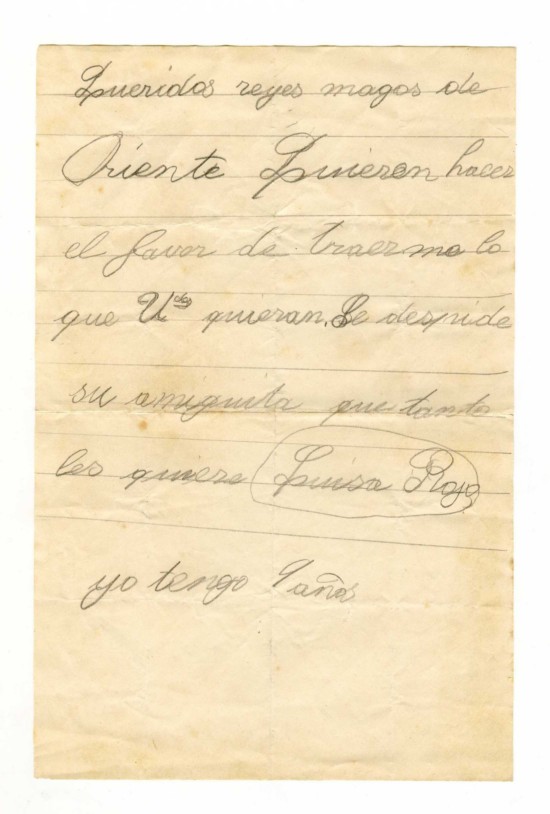 Queridos reyes magos de
Oriente Quieren hacer
el favor de traerme lo
que Uds quieran. Se despide
su amiguita que tanto
les quiere Luisa Rojo
yo tengo 9 años